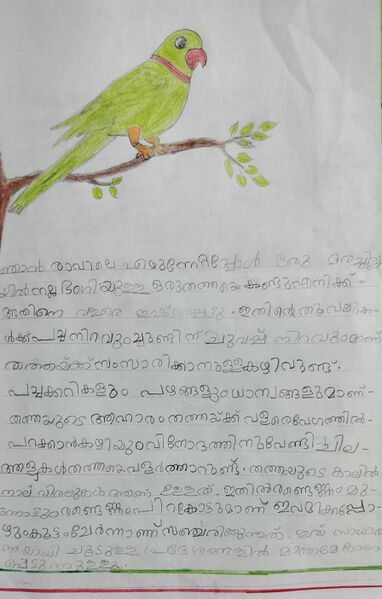 ഞാൻ രാവിലെ എഴുന്നേറ്റപ്പോൾ ഒരു മരച്ചില്ല
യിൽ നല്ല ഭംഗിയുള്ള ഒരു തത്തയെ കണ്ടു എനിക്ക്
അതിനെ വളരെ ഇഷ്ടപ്പെട്ടു. ഇതിന്റെ തൂവലുക
ൾക്ക് പച്ച നിറവും ചുണ്ടിന് ചുവപ്പ് നിറവുമാണ്
തത്തയ്ക്ക് സംസാരിക്കാനുള്ള കഴിവുണ്ട്.
പച്ചക്കറികളും പഴങ്ങളും ധാന്യങ്ങളുമാണ്-
തത്തയുടെ ആഹാരം തത്തയ്ക്ക് വളരെ വേഗത്തിൽ-
പറക്കാൻ കഴിയും വിനോദത്തിനുവേണ്ടി ചില
ആളുകൾ തത്തയെ വളർത്താറുണ്ട്. തത്തയുടെ കാലിൽ
നാല് വിരലുകൾ ഉള്ളത്. ഇതിൽ രണ്ടെണ്ണം മു
ന്നോട്ടും രണ്ടെണ്ണം പിറകോട്ടുമാണ് ഇവ മിക്കപ്പോ-
ഴും കൂട്ടം ചേർന്നാണ് സഞ്ചരിക്കുന്നത്. ഇത് സാധാര
ണയായി ചൂടുള്ള പ്രദേശങ്ങളിൽ മാത്രമേ കാണ
പ്പെടുന്നുള്ളു.